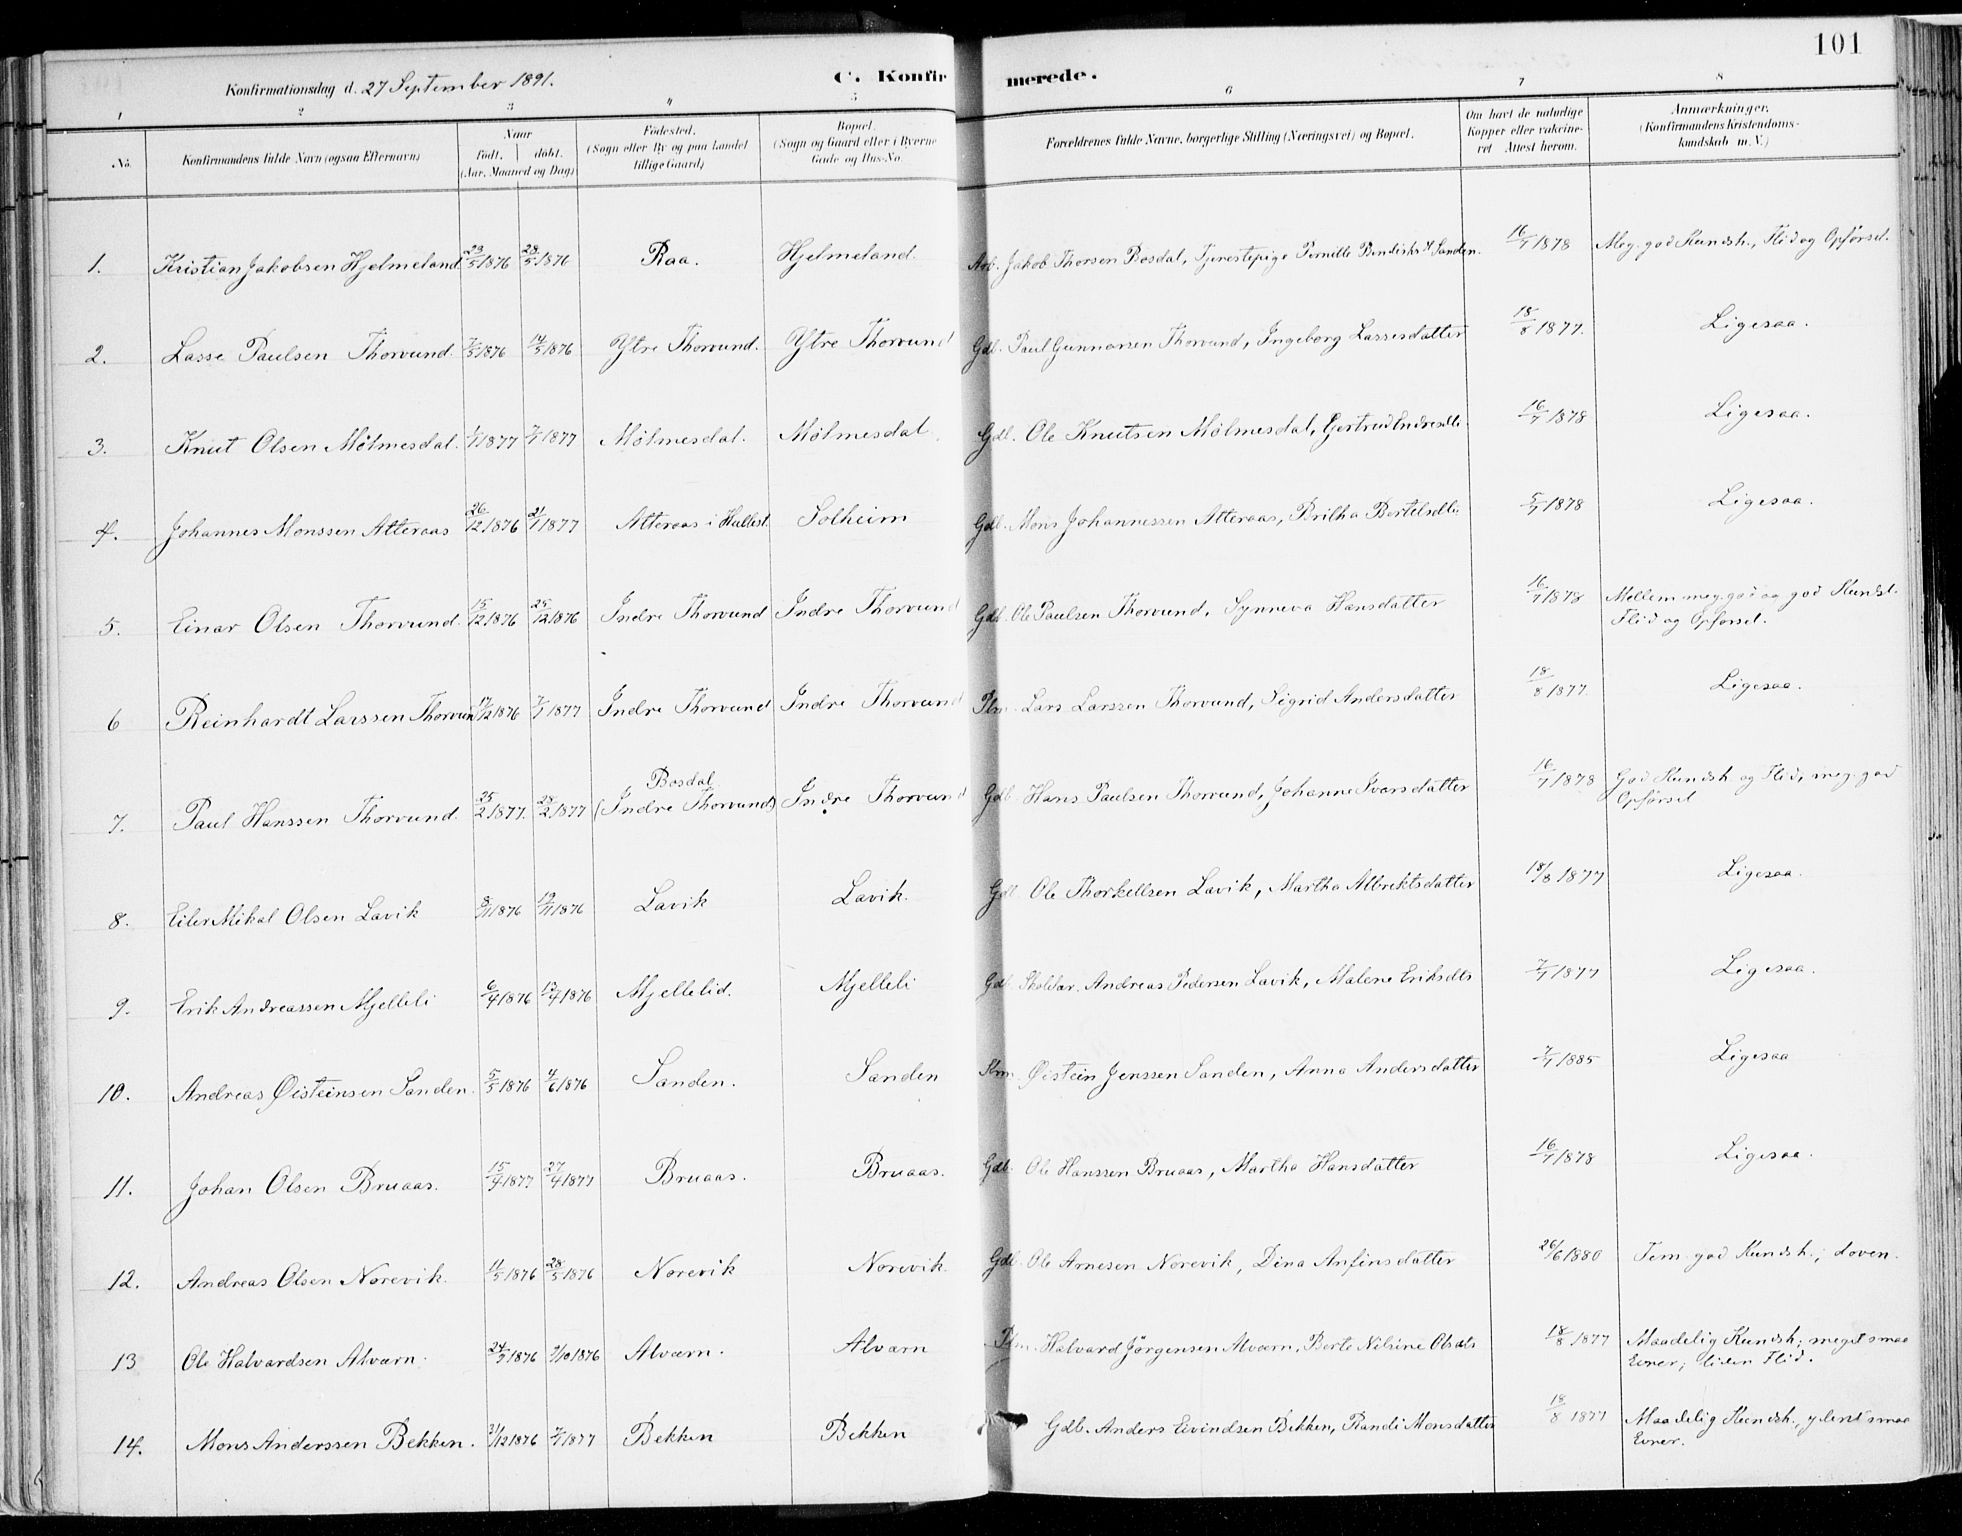 101
Konfirmationsdag d. 27 September 1891.
C. Konfirmerede.
1 2 3 4 5 6 7 8
No.
Konfirmandens fulde Navn (ogsaa Efternavn)
Naar
født. døbt.
(Aar, Maaned og Dag)
Fødested.
(Sogn eller By og paa Landet
tillige Gaard)
Bopæl.
(Sogn og Gaard eller i Byerne
Gade og Hus-No.
Forældrenes fulde Navne, borgerlige Stilling (Næringsvei) og Bopæl.
Om havt de naturlige
Kopper eller vakcine-
ret Attest herom.
Anmærkninger.
(Konfirmandens Kristendoms-
kundskab m. V.)
1. Kristian Jakobsen Hjelmeland 23/5 1876 28/5 1876 Raa. Hjelmeland. Jakob Thorsen Bosdal, Tjenestepige Pernille Sanden. 16/7 1878 Meg. god Kundsk., Flid og Opførsel.
2. Lasse Paulsen Thorvund. 7/5 1876 14/5 1876 Ytre Thorvund. Ytre Thorvund Gdb. Paul Gunnarsen Thorvund, Ingeborg Lassesdatter 18/8 1877. Ligesaa.
3. Knut Olsen Mølmesdal. 1/1 1877 7/1 1877 Mølmesdal. Mølmesdal. Gdb. Ole Knutsen Mølmesdal, Gertrud Endresdtr 16/7 1878 Ligesaa.
4. Johannes Monssen Atteraas 26/12 1876 21/1 1877 Atteraas i Hallest. Solheim Gdb. Mons Johannessen Atteraas, Britha Bertelsdtr 5/7 1878 Ligesaa.
5. Einar Olsen Thorvund. 15/12 1876 25/12 1876 Indre Thorvund Indre Thorvund Gdb. Ole Paulsen Thorvund, Synneva Hansdatter 16/7 1878 Mellem meg. god og god Kundsk.
Flid og Opførsel.
6 Reinhardt Larssen Thorvun 17/12 1876 7/1 1877 Indre Thorvund Indre Thorvund Plm. Lars Larssen Thorvund, Sigrid Andersdatter 18/8 1877. Ligesaa.
Bosdal
7. Paul Hanssen Thorvund. 25/2 1877. 28/2 1877 (Indre Thorvund) Indre Thorvund Gdb. Hans Paulsen Thorvund, Johanne Ivarsdatter 16/7 1878 God Kundsk. og Flid, meg. god
Opførsel
8. Eiler Mikal Olsen Lavik 8/11 1876 19/11 1876 Lavik Lavik. Gdb. Ole Thorkellsen Lavik, Martha Albrektsdatter 18/8 1877 Ligesaa.
9. Erik Andreassen Mjelleli 6/4 1876 13/4 1876 Mjellelid. Mjelleli Gdb. Andreas Pedersen Lavik, Malene Eriksdtr 7/7 1877 Ligesaa.
10. Andreas Øisteinsen Sanden. 5/5 1876 4/6 1876 Sanden. Sanden Øistein Jenssen Sanden, Anna Andersdatter 7/7 1885 Ligesaa
11. Johan Olsen Bruaas. 15/4 1877 27/4 1877 Bruaas. Bruaas. Gdb. Ole Hanssen Bruaas, Martha Hansdatter 16/7 1878 Ligesaa.
12. Andreas Olsen Norevik. 11/5 1876 28/5 1876 Norevik Norevik. Gdb. Ole Arnesen Norevik, Dina Anfinsdatter 26/6 1880 Tem. god Kundsk.; doven.
13 Ole Halvardsen Alværn. 24/9 1876 1/10 1876 Alværn. Alværn Plm. Halvard Jørgensen Alværn, Berte Nilsine Olsdtr 18/8 1877 Maadelig Kundsk; meget smaa
Evner; liden Flid.
14. Mons Anderssen Bekken. 31/12 1876 7/1 1877 Bekken Bekken Gdb. Anders Eivindsen Bekken, Randi Monsdatter 18/8 1877 Maadelig Kundsk., smaa
Evner.